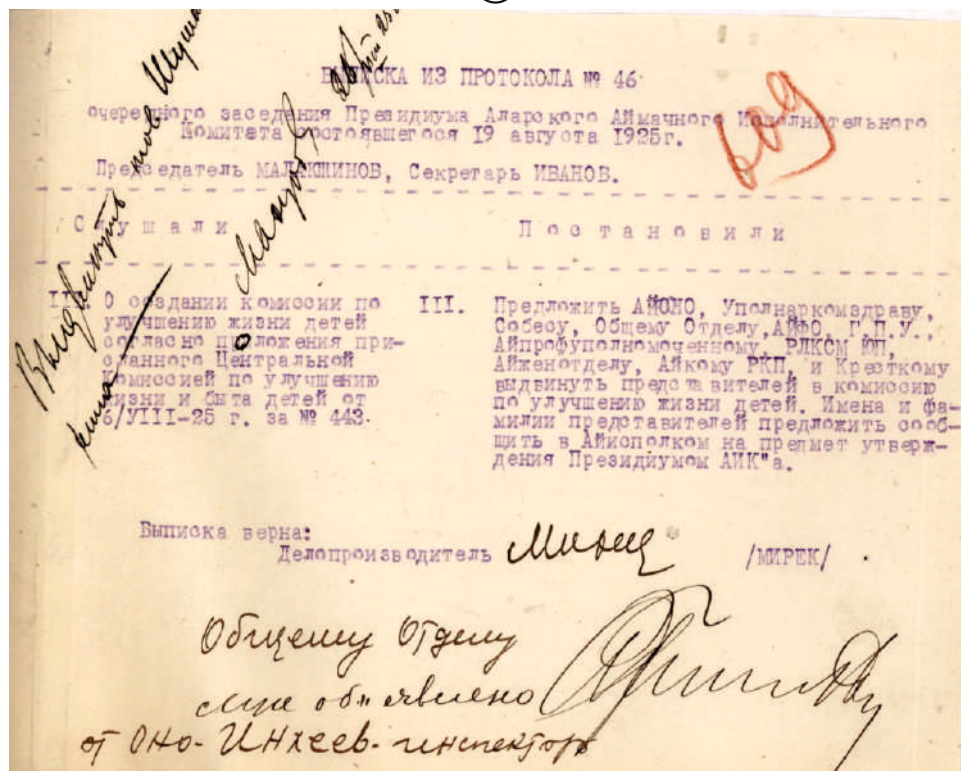 ВЫПИСКА ИЗ ПРОТОКОЛА № 46
очередного заседания Президиума Аларского Аймачного Исполнительного
Комитета состоявшегося 19 августа 1925г.
Председатель МАЛАКШИНОВ, Секретарь ИВАНОВ.
Слушали
Постановили
III. О создании комиссии по
улучшению жизни детей
согласно приложения при-
сланного Центральной
Комиссией по улучшению
жизни и быта детей от
6/УIII-25 г. за № 443.
III. Предложить АЙОНО, Уполнаркомздраву,
Собесу, Общему Отделу, АЙФО, Г.П.У.,
Айпрофуполномоченному РЛКСМ ЮП,
Айженотделу, Айкому РКП, и Кресткому
выдвинуть представителей в комиссию
по улучшению жизни детей. Имена и фа-
милии представителей предложить сооб-
щить в Айисполком на предмет утверж-
дения Президиумом АИК"а.
Выписка верна:
Делопроизводитель /МИРЕК/
Общему Отделу
об'явлено
от ОНО - Инхеев - инспектор